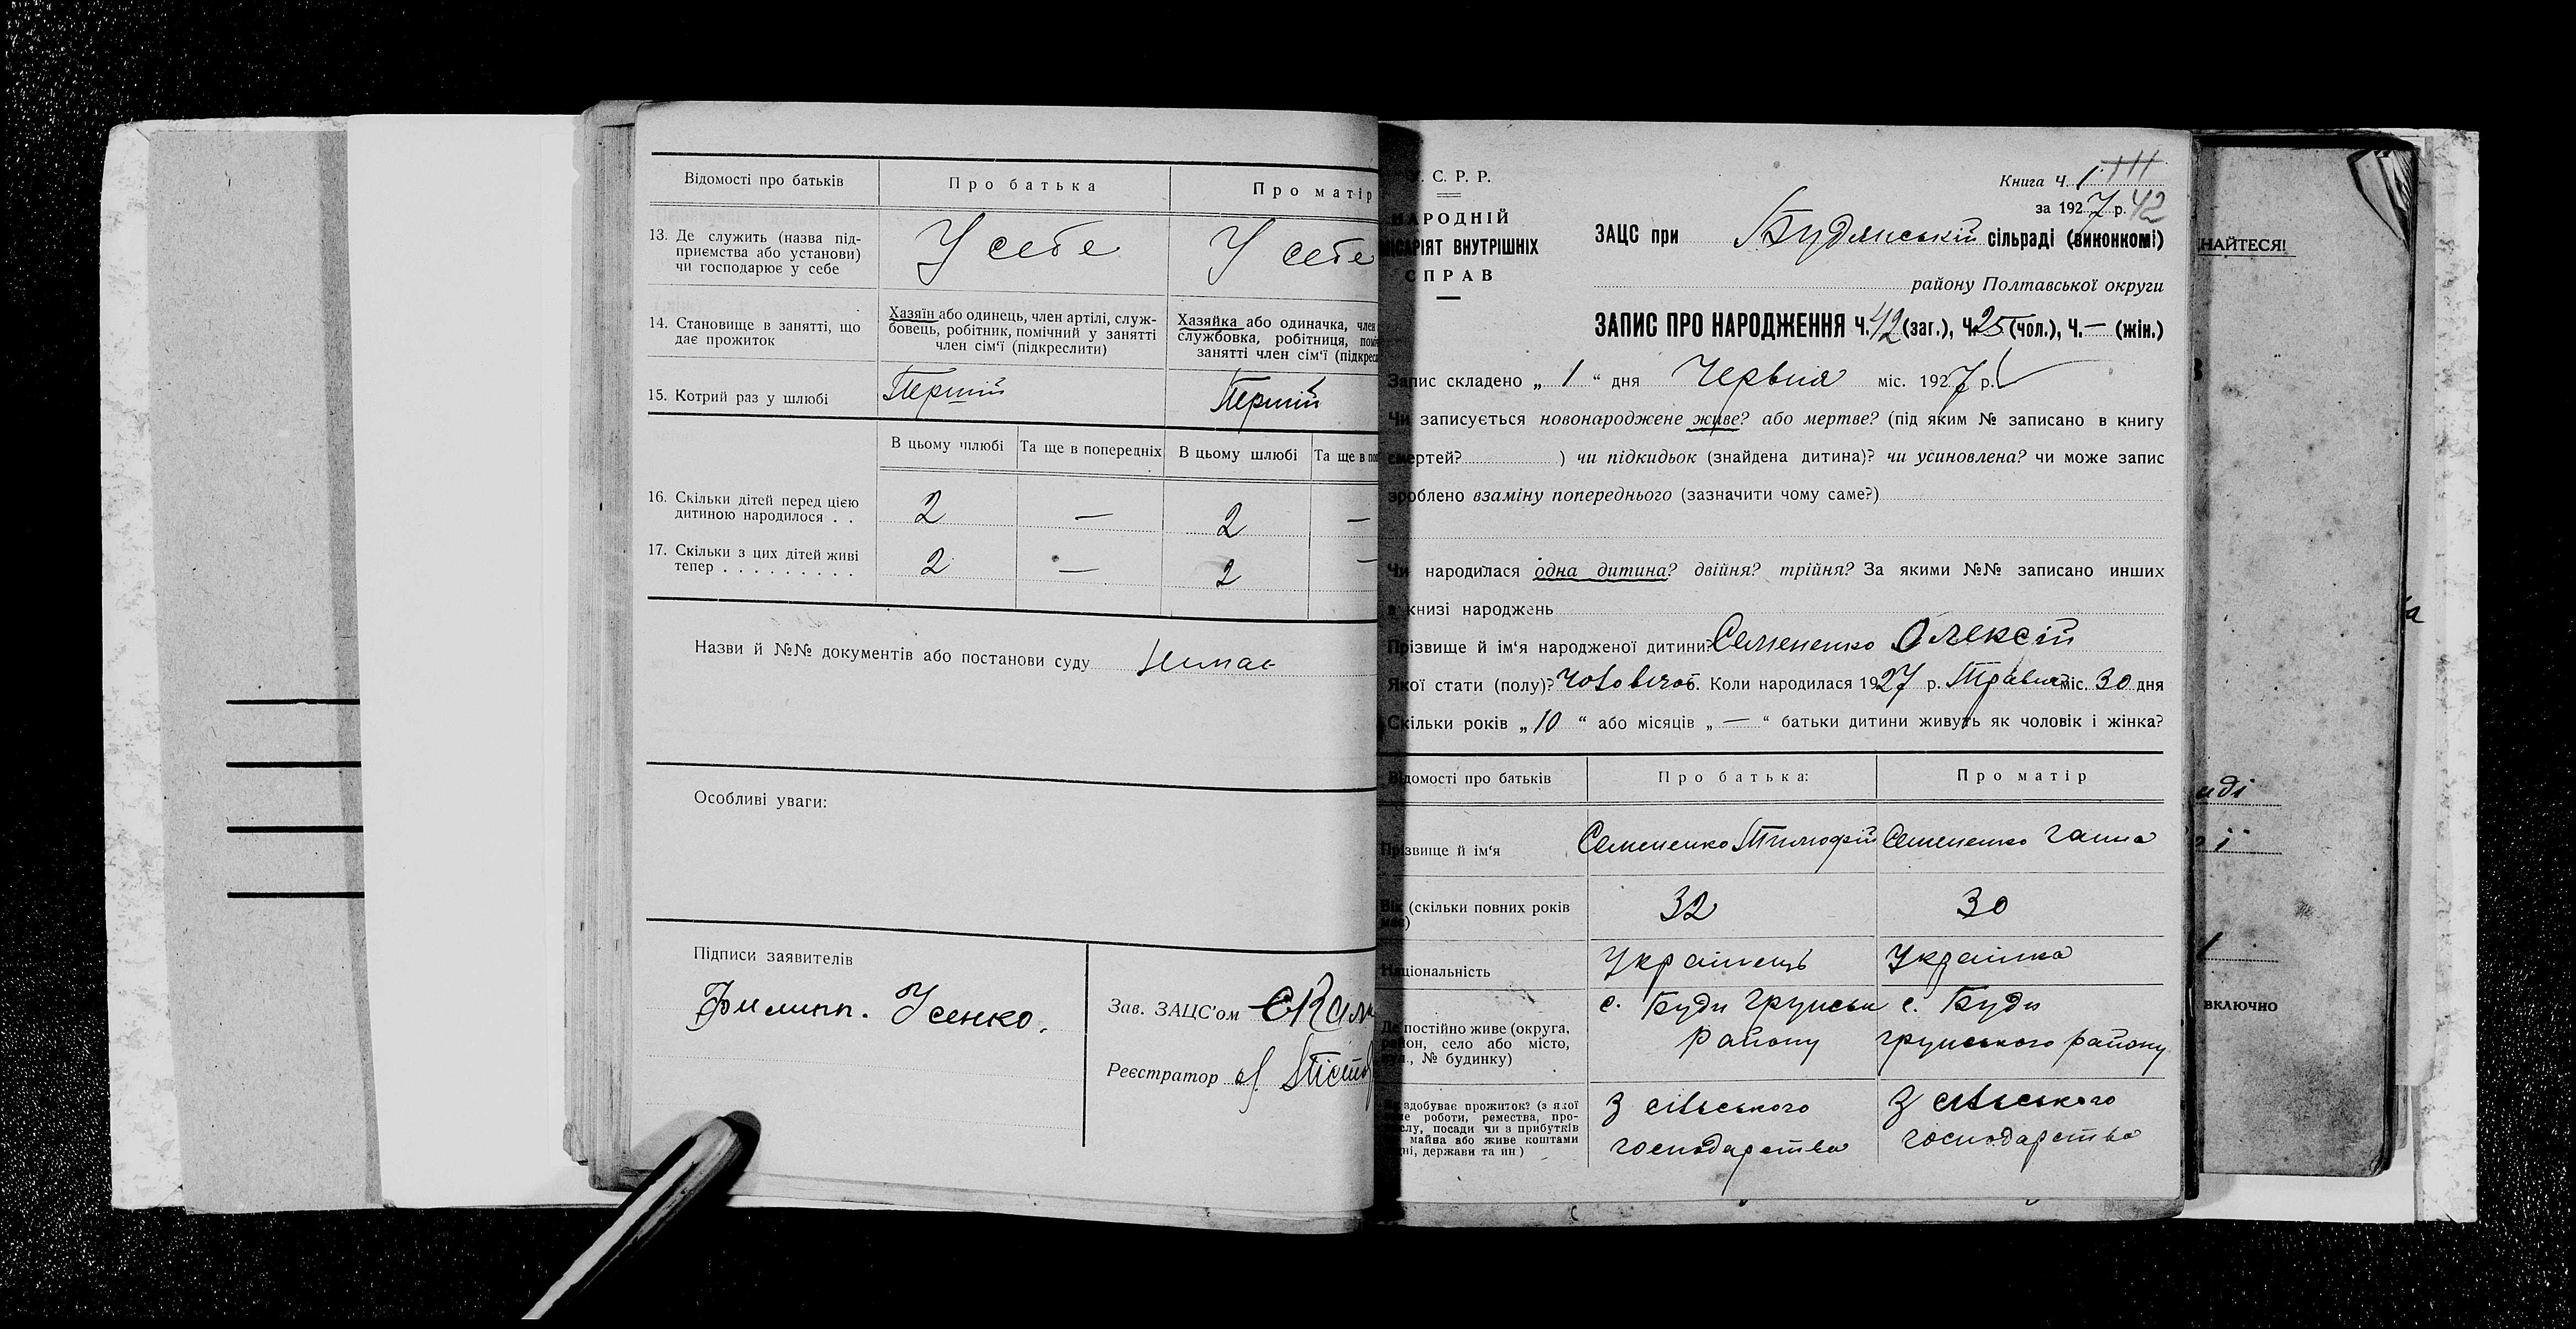 Відомості про батьків
Про батька
Про матір
13. Де служить (назва під-
приємства або установи)
чи господарює у себе
У себе
У себе
14. Становище в занятті, що
дає прожиток
Хазяїн або одинець, член артілі, служ-
бовець, робітник, помічний у занятті
член сім'ї (підкреслити)
Хазяйка або одиначка, член
службовка, робітниця,
занятті член сім'ї
15. Котрий раз у шлюбі
Перший
Перший
В цьому шлюбі
Та ще в попередніх
В цьому шлюбі
Та ще в
16. Скільки дітей перед цією
дитиною народилося . .
2 — 2 —
17. Скільки з цих дітей живі
тепер . . . . . . . . .
2 — 2 —
Назви й №№ документів або постанови суду Немає
Особливі уваги:
Підписи заявителів
Филипп. Усенко.
Зав. ЗАЦС'ом
Реєстратор
У. С. Р. Р.
НАРОДНІЙ
КОМІСАРІЯТ ВНУТРІШНІХ
СПРАВ
Книга Ч. 1
за 1927 р. 42
ЗАЦС при Будянській сільраді (виконкомі)
району Полтавської округи
ЗАПИС ПРО НАРОДЖЕННЯ Ч. 42 (заг.), Ч. 25 (чол.), Ч. — (жін.)
Запис складено „ 1 “ дня Червня міс. 1927 р.
Чи записується новонароджене живе? або мертве? (під яким № записано в книгу
смертей? ) чи підкидьок (знайдена дитина)? чи усиновлена? чи може запис
зроблено взаміну попереднього (зазначити чому саме?)
Чи народилася одна дитина? двійня? трійня? За якими №№ записано инших
в книзі народжень
Прізвище й ім'я народженої дитини? Семененко Олексій
Якої стати (полу)? Чоловічоб. Коли народилася 1927 р. Травня міс. 30 дня
Скільки років „ 10 “ або місяців „ — “ батьки дитини живуть як чоловік і жінка?
Відомості про батьків
Про батька:
Про матір
Прізвище й ім'я
Семененко Тимофій
Семененко Ганна
Вік (скільки повних років
має)
32
30
Національність
Українець
Українка
Де постійно живе (округа,
район, село або місто,
вул., № будинку)
с. Буди Грунськ
Району
с. Буди
Грунського району
здобуває прожиток? (з якої
роботи, ремества, про-
слу, посади чи з прибутків
майна або живе коштами
держави та ин)
З сільського
господарства
З сільського
господарства
НАЙТЕСЯ!
иді
ії
включно